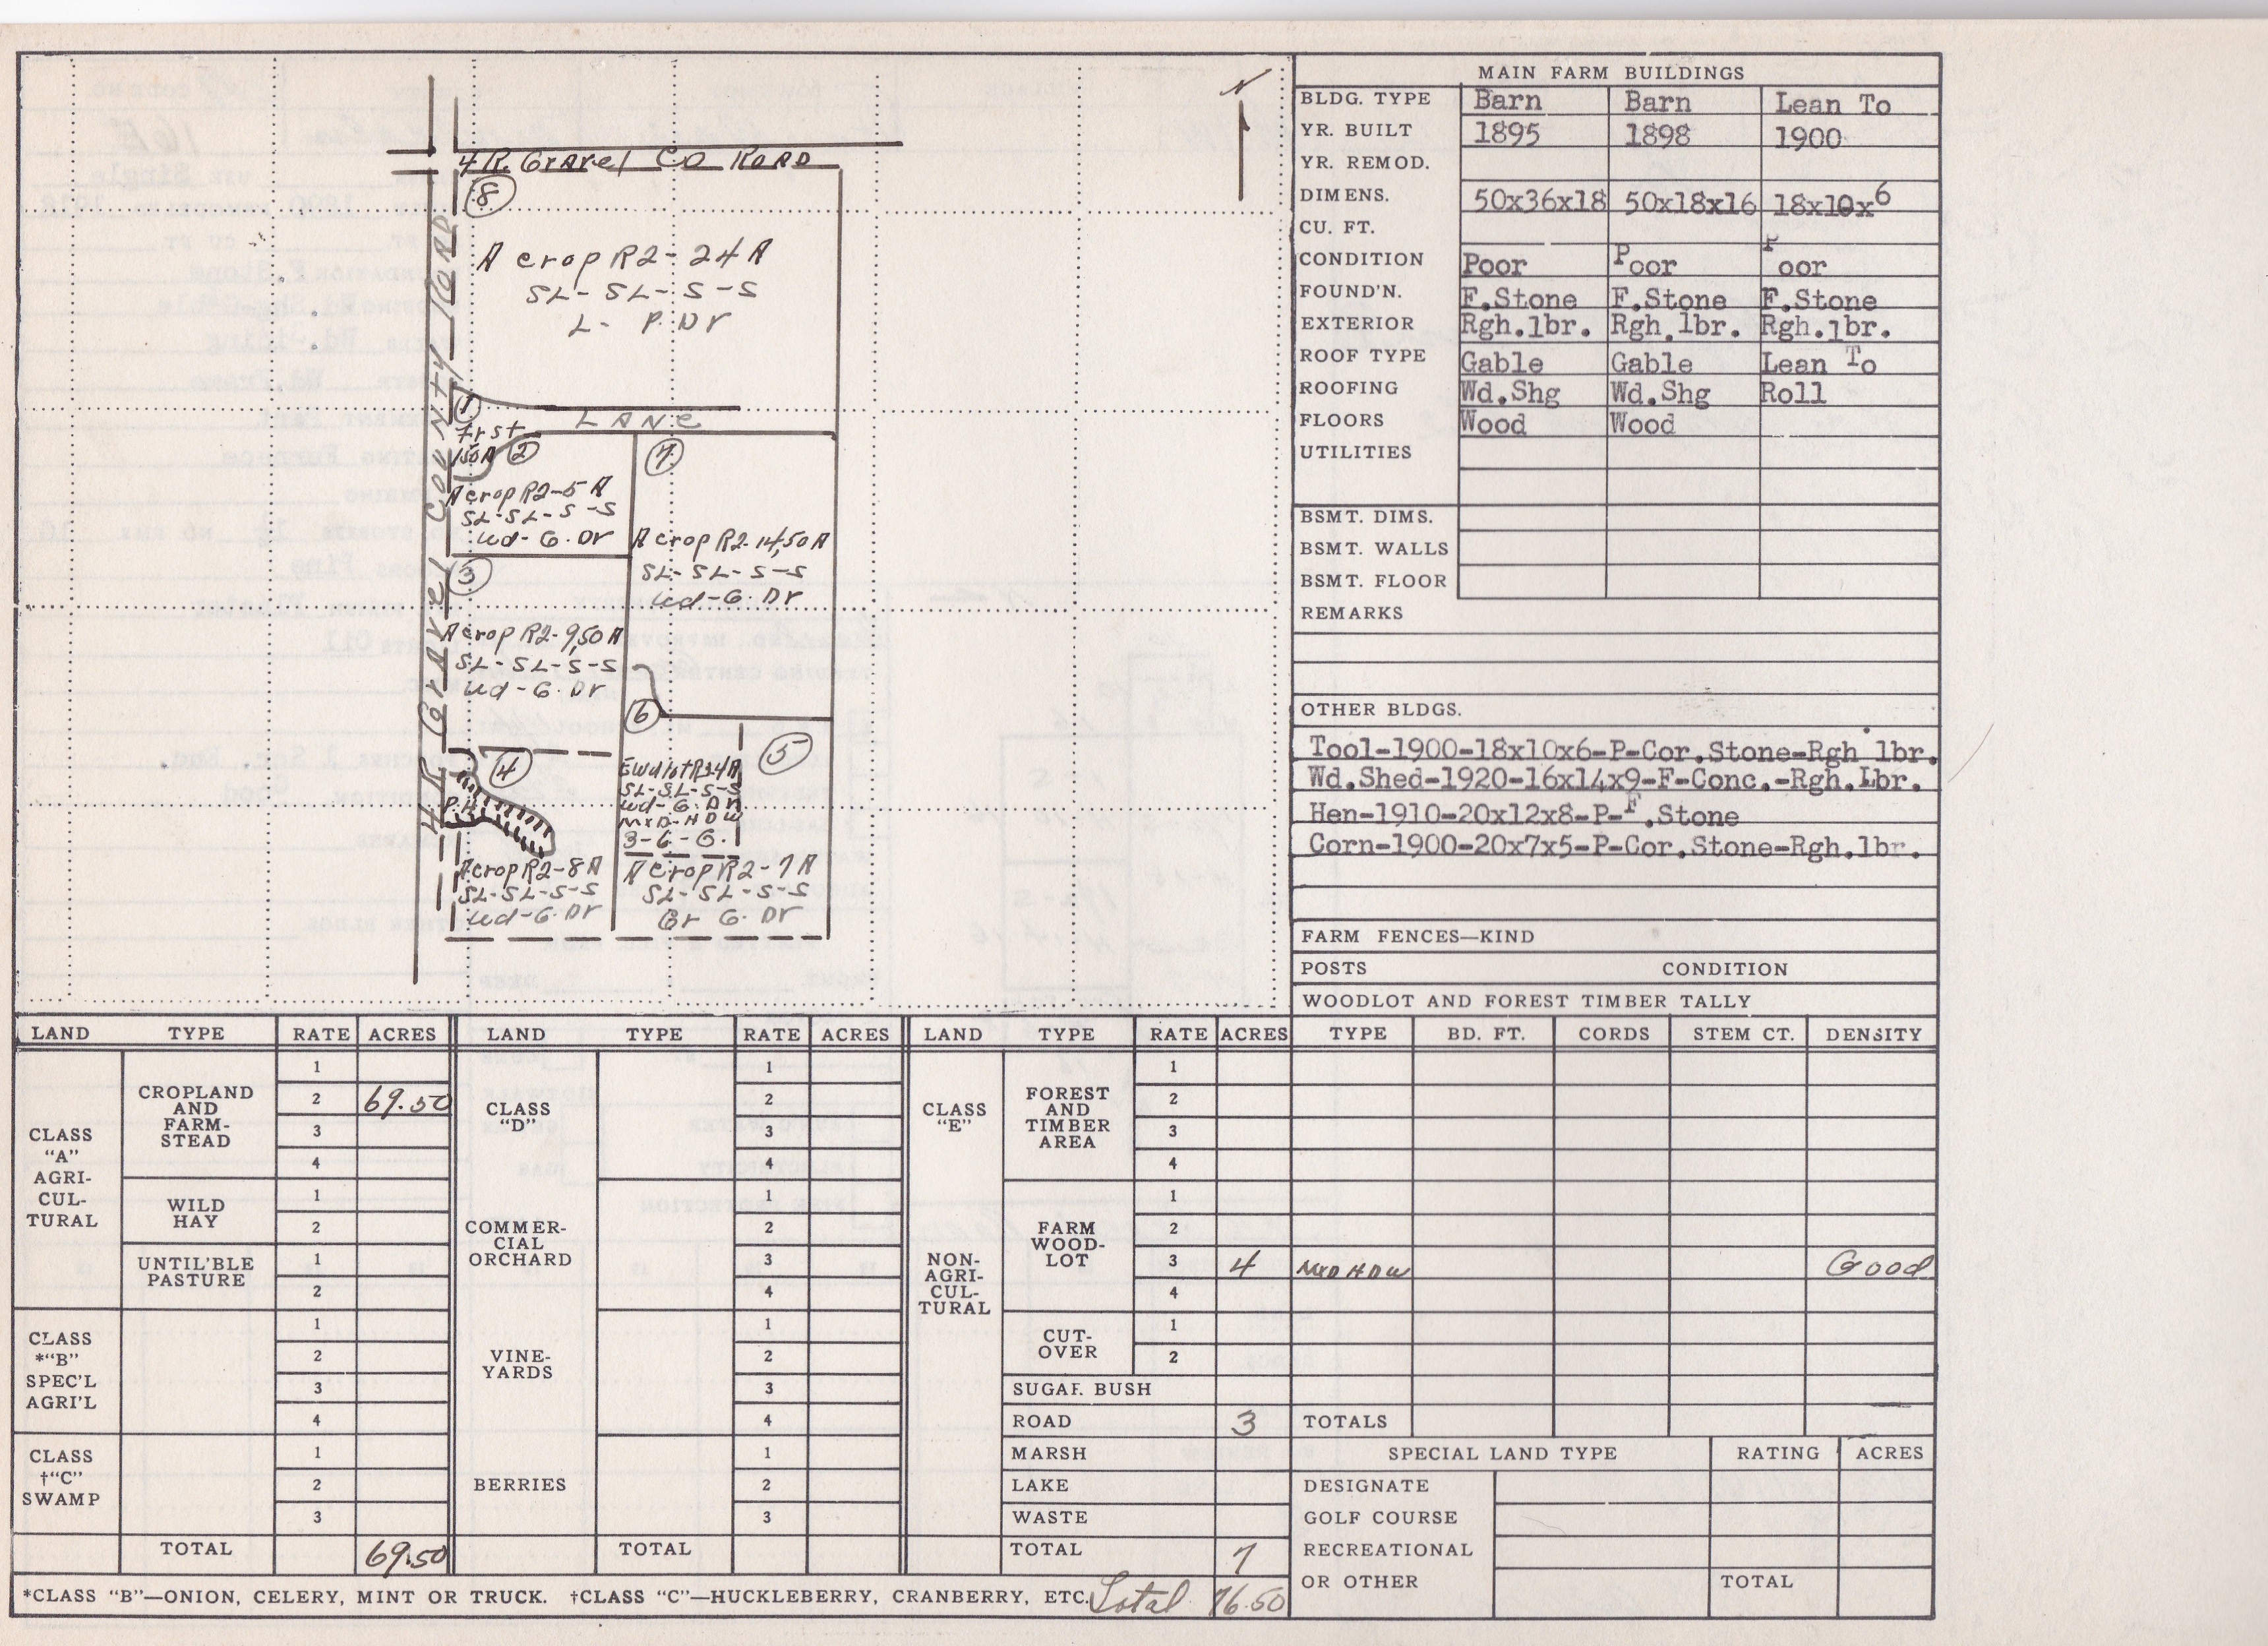 N
4 R. Gravel Co ROAD
8
A crop R2-24A
SL-SL-S-S
L- P. Dr
4 R Gravel County Road
1
Frst
1.50A
LANe
2
A crop R2-5A
SL-SL-S-S
Ud-G. Dr
7
A crop R2-14,50A
SL-SL-S-S
Ud-G. Dr
3
A crop R2-9,50A
SL-SL-S-S
Ud-G. Dr
6
5
4
P.H.
SL-SL-S-S
Ud-G. Dr
MxD-HDW
3-6-G.
A crop R2-8A
SL-SL-S-S
Ud-G. Dr
A crop R2-7A
SL-SL-S-S
Br G. Dr
MAIN FARM BUILDINGS
BLDG. TYPE Barn Barn Lean To
YR. BUILT 1895 1898 1900
YR. REMOD.
DIMENS. 50x36x18 50x18x16 18x10x6
CU. FT.
CONDITION Poor Poor Poor
FOUND'N. F.Stone F.Stone F.Stone
EXTERIOR Rgh.lbr. Rgh.lbr. Rgh.lbr.
ROOF TYPE Gable Gable Lean To
ROOFING Wd.Shg Wd.Shg Roll
FLOORS Wood Wood
UTILITIES
BSMT. DIMS.
BSMT. WALLS
BSMT. FLOOR
REMARKS
OTHER BLDGS.
Tool-1900-18x10x6-P-Cor.Stone-Rgh lbr.
Wd.Shed-1920-16x14x9-F-Conc.-Rgh.Lbr.
Hen-1910-20x12x8-P-F.Stone
Corn-1900-20x7x5-P-Cor.Stone-Rgh.lbr.
FARM FENCES—KIND
POSTS CONDITION
WOODLOT AND FOREST TIMBER TALLY
LAND TYPE RATE ACRES LAND TYPE RATE ACRES LAND TYPE RATE ACRES TYPE BD. FT. CORDS STEM CT. DENSITY
CLASS
"A"
AGRI-
CUL-
TURAL
CROPLAND
AND
FARM-
STEAD
1
2 69.50
3
4
WILD
HAY
1
2
UNTIL'BLE
PASTURE
1
2
CLASS
*"B"
SPEC'L
AGRI'L
1
2
3
4
CLASS
†"C"
SWAMP
1
2
3
TOTAL 69.50
CLASS
"D"
1
2
3
4
COMMER-
CIAL
ORCHARD
1
2
3
4
VINE-
YARDS
1
2
3
4
BERRIES
1
2
3
TOTAL
CLASS
"E"
NON-
AGRI-
CUL-
TURAL
FOREST
AND
TIMBER
AREA
1
2
3
4
FARM
WOOD-
LOT
1
2
3 4 MxD HDW Good
4
CUT-
OVER
1
2
SUGAR BUSH
ROAD 3 TOTALS
MARSH
LAKE
WASTE
TOTAL 7
SPECIAL LAND TYPE RATING ACRES
DESIGNATE
GOLF COURSE
RECREATIONAL
OR OTHER TOTAL
*CLASS "B"—ONION, CELERY, MINT OR TRUCK. †CLASS "C"—HUCKLEBERRY, CRANBERRY, ETC. Total 76.50